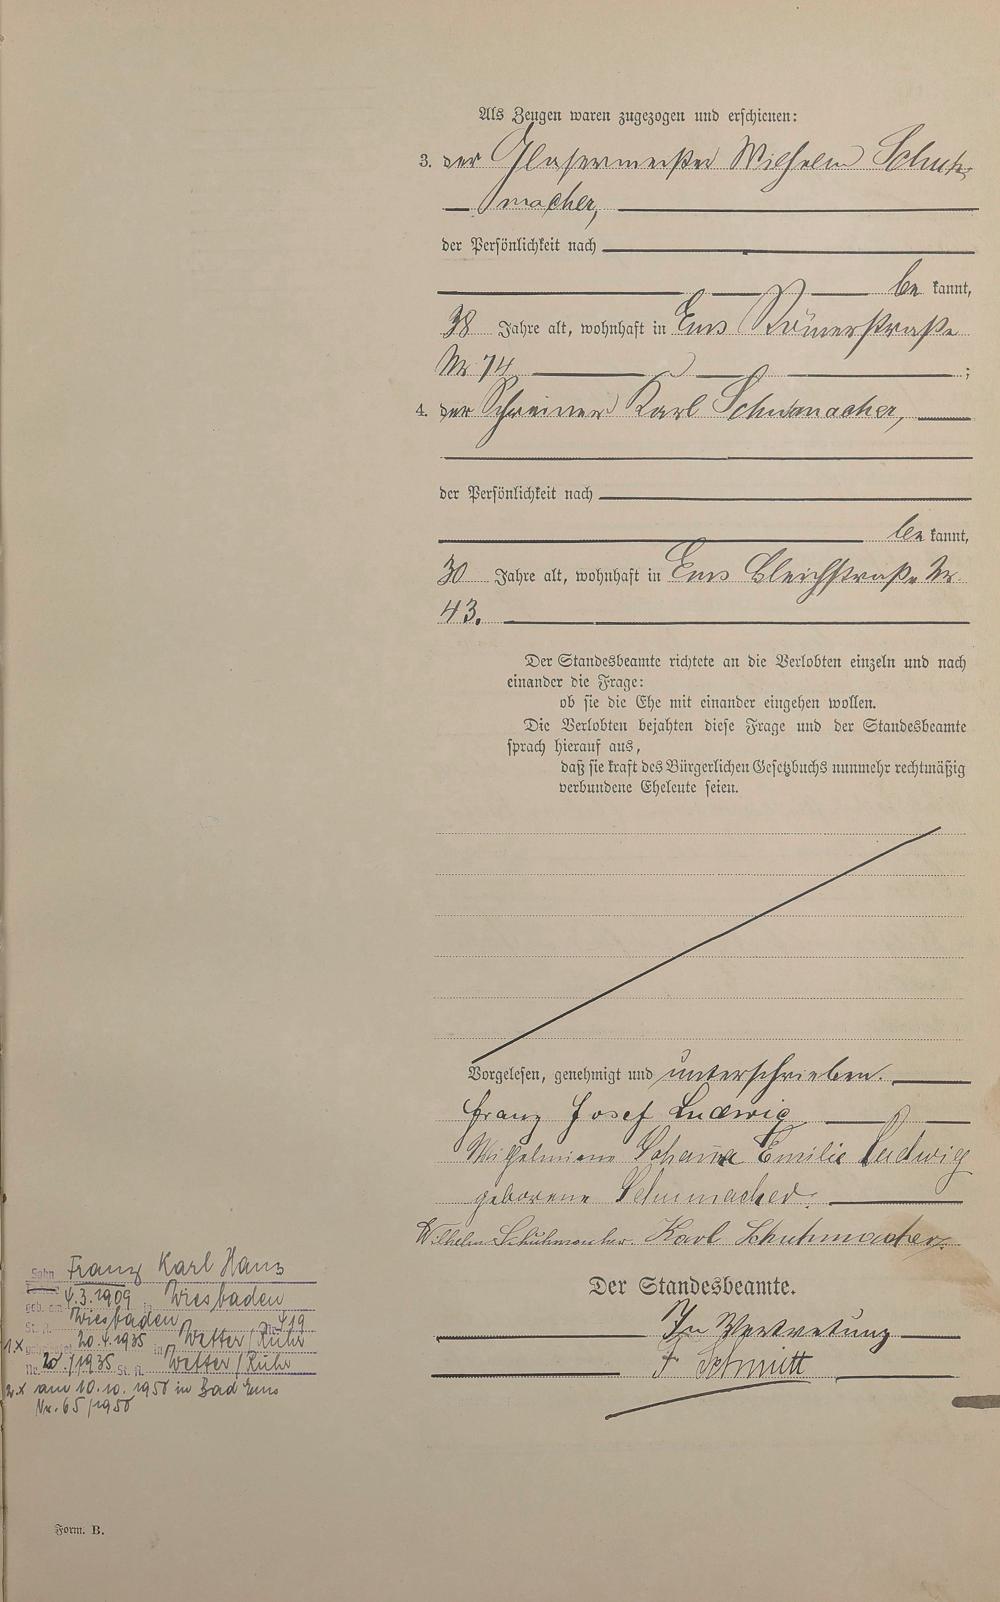 Als Zeugen waren zugezogen und erschienen:
3. der Glasermeister Wilhelm Schuh-
macher,
der Persönlichkeit nach
be kannt,
38 Jahre alt, wohnhaft in Ems Römerstraße
Nr 74 ;
4. der Schreiner Karl Schumacher,
der Persönlichkeit nach
be kannt,
30 Jahre alt, wohnhaft in Ems Bleichstraße Nr.
43.
Der Standesbeamte richtete an die Verlobten einzeln und nach
einander die Frage:
ob sie die Ehe mit einander eingehen wollen.
Die Verlobten bejahten diese Frage und der Standesbeamte
sprach hierauf aus,
daß sie kraft des Bürgerlichen Gesetzbuchs nunmehr rechtmäßig
verbundene Eheleute seien.
Vorgelesen, genehmigt und unterschrieben.
Franz Josef Ludwig
Wilhelmine Johanna Emilie Ludwig
geborene Schumacher.
Wilhelm Schuhmacher. Karl Schuhmacher.
Der Standesbeamte.
In Vertretung
F. Schmitt
Sohn Franz Karl Hans
geb. am 4.3.1909 in Wiesbaden
St. A. Wiesbaden Nr. 419
1.x geheiratet 20.4.1935 in Wetter/Ruhr
Nr. 20/1935 St. A. Wetter/Ruhr
2.x am 10.10.1950 in Bad Ems
Nr. 65/1950
Form. B.